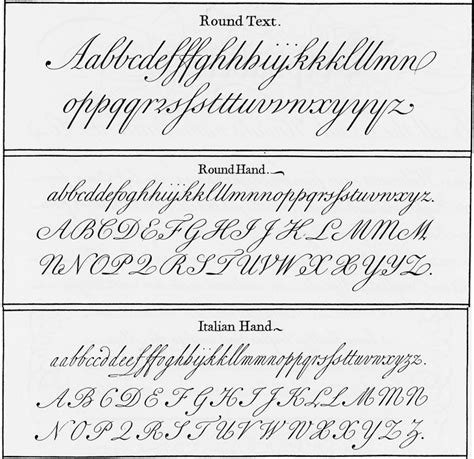 Round Text.
Aabbcdefffghhhiijkkklllmn
oppqqrzsſsttttuvvnxyyyz
Round Hand.
abbcddefoghhiijkkllmnnoppqrsſstuvnxyz.
ABCDEFGHIJKLMMM
NNOPQRSTUVWXXYYZ.
Italian Hand
aabbccddeefffoghbijkkllmmnnoppqrsſsttuvwnxyzz.
ABCDEFGHIJKLMMN
NOPQRRSTUVWXYYZZ.